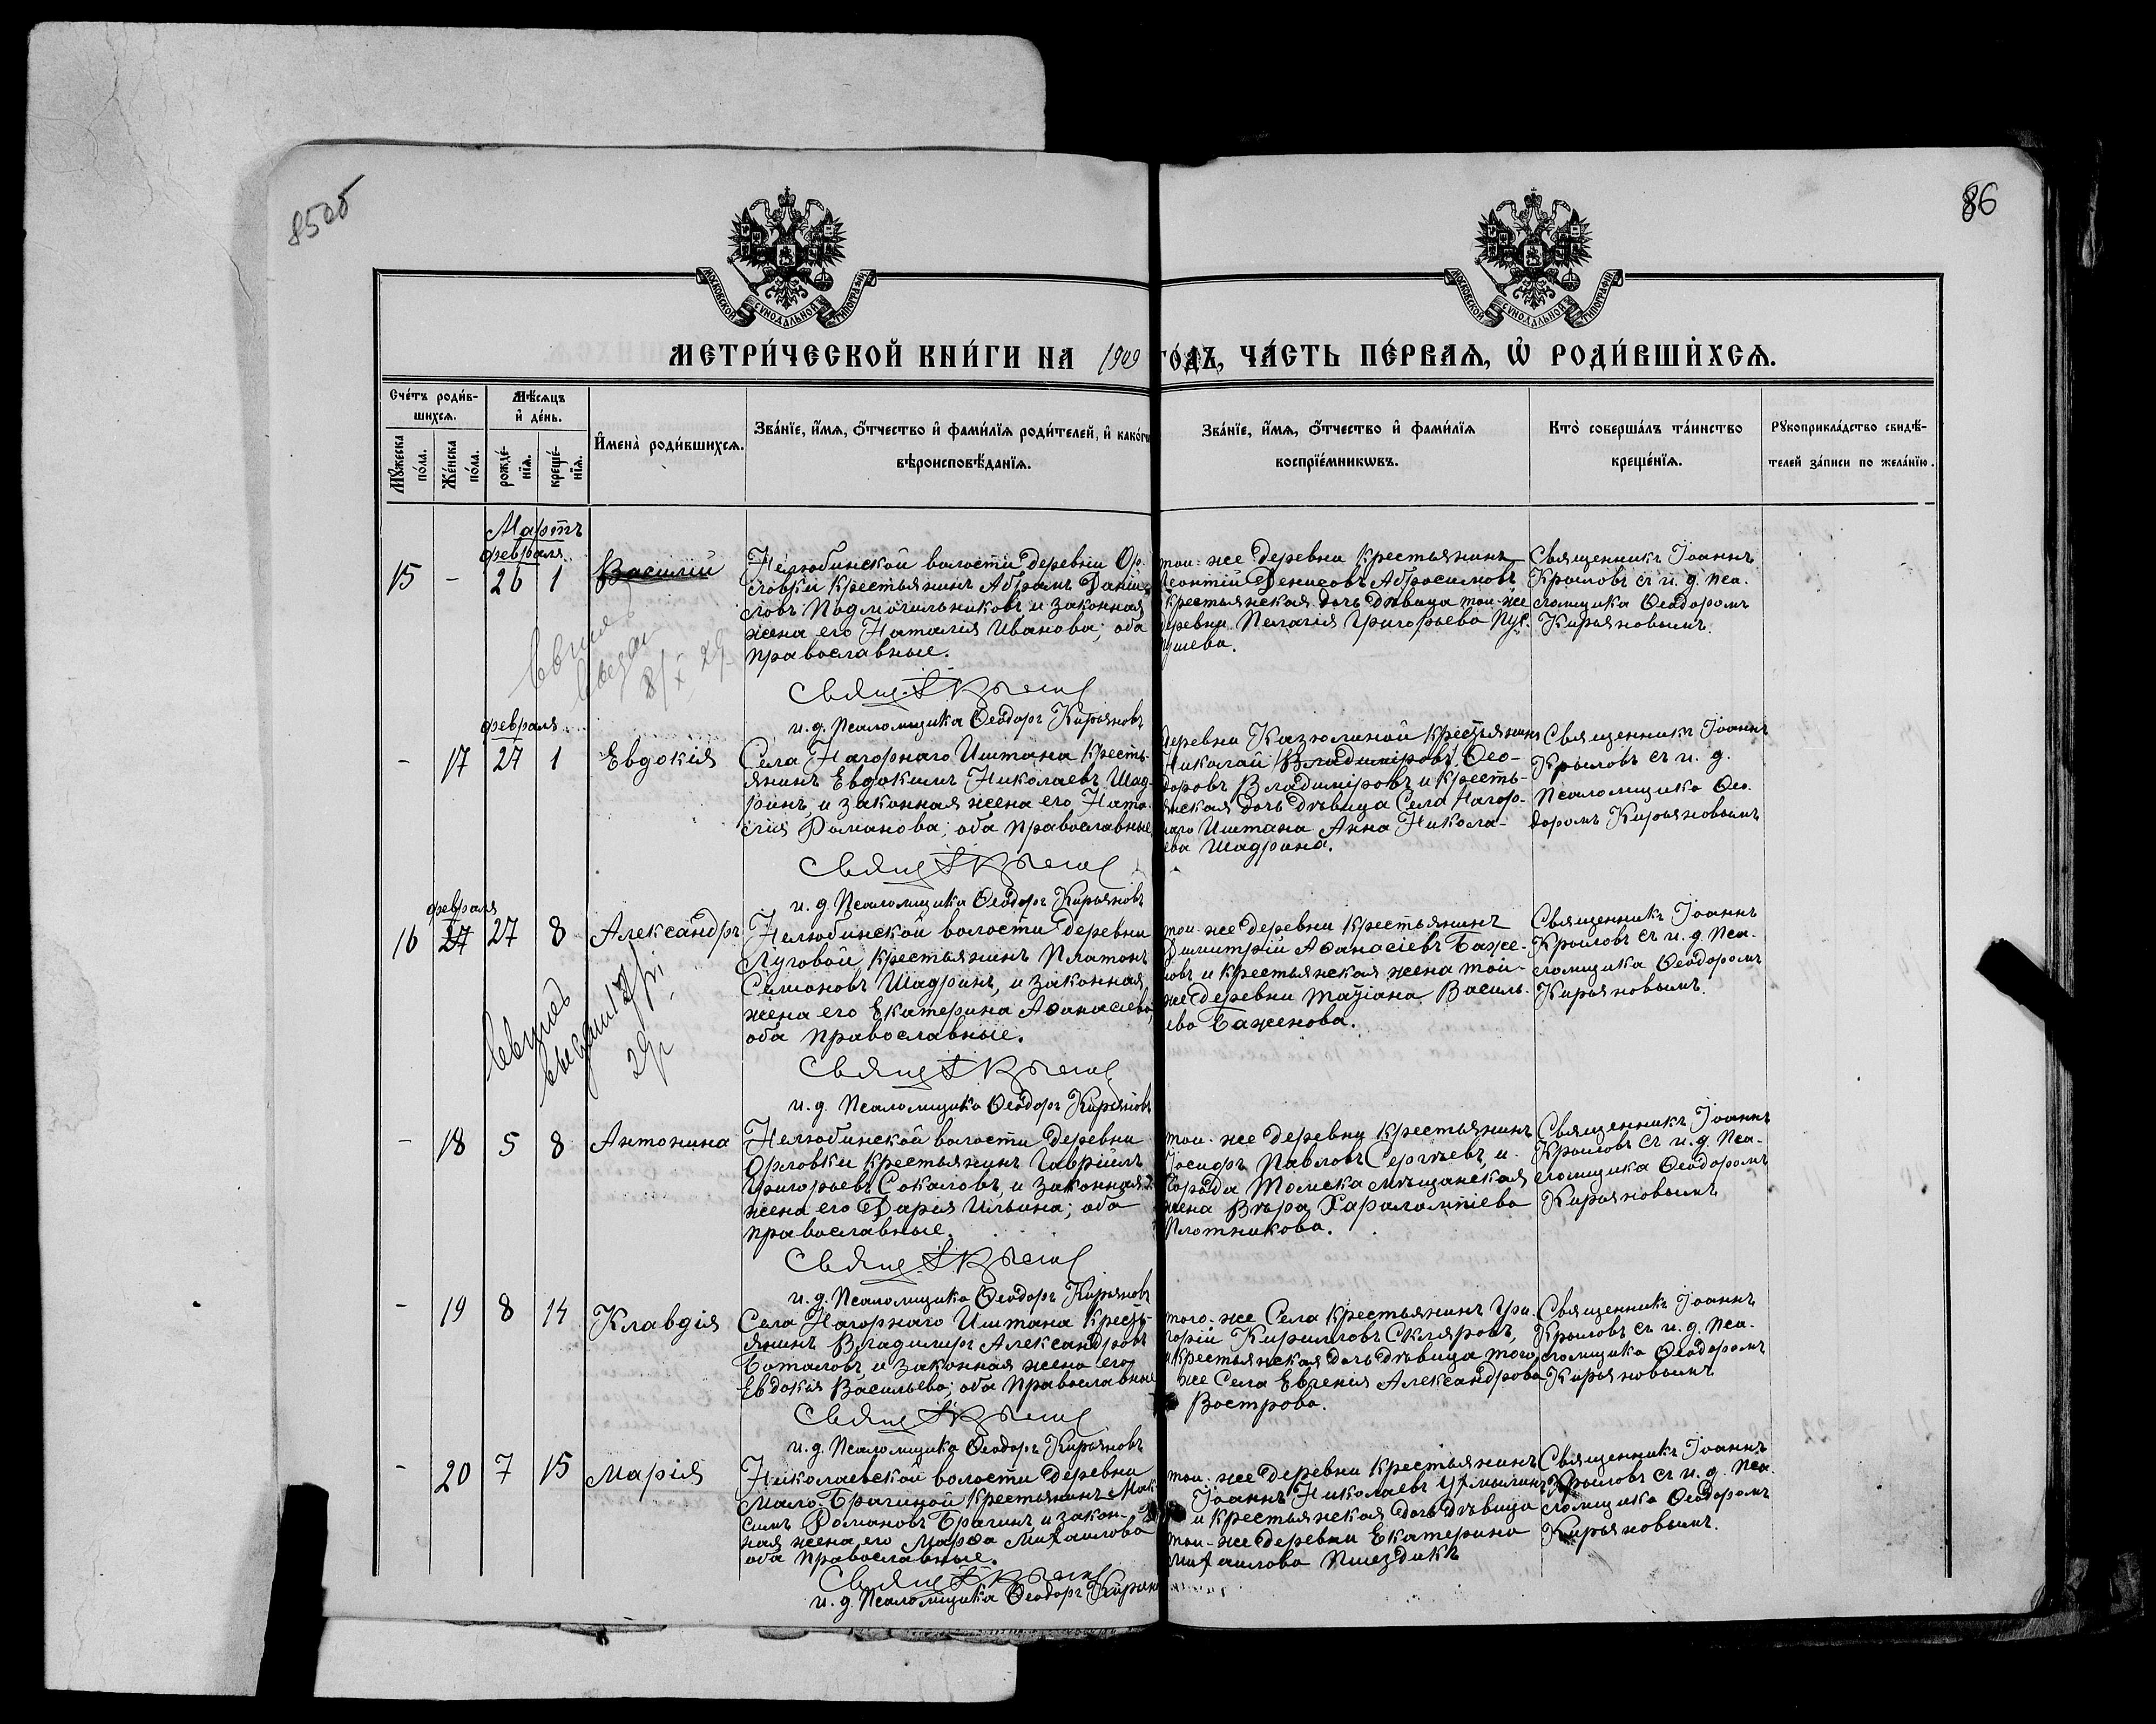 85об
86
МОСКОВСКОЙ СѴНОДАЛЬНОЙ ТИПОГРАФІИ
МОСКОВСКОЙ СѴНОДАЛЬНОЙ ТИПОГРАФІИ
МЕТРИ́ЧЕСКОЙ КНИ́ГИ НА 1909 ГО́ДЪ, ЧА́СТЬ ПЕ́РВАѦ, Ѡ҆ РОДИ́ВШИХСѦ.
Сче́тъ роди́в-
шихсѧ.
Мꙋ́жеска по́ла.
Же́нска по́ла.
Мѣ́сѧцъ
и҆ де́нь.
рожде́-
нїѧ.
креще́-
нїѧ.
И҆мена̀ роди́вшихсѧ.
Зва́нїе, и҆́мѧ, ѻ҆́тчество и҆ фами́лїѧ роди́телей, и҆ како́гѡ
вѣроисповѣ́данїѧ.
Зва́нїе, и҆́мѧ, ѻ҆́тчество и҆ фами́лїѧ
воспрїе́мникѡвъ.
Кто̀ соверша́лъ та́инство
креще́нїѧ.
Рꙋкоприкла́дство свидѣ́-
телей за́писи по жела́нїю.
Мартъ
февраля
15 - 26 1 Василій
Нелюбинской волости деревни Ор-
ловки крестьянинъ Абрамъ Дани-
ловъ Подмогильниковъ и законная
жена его Наталія Иванова; оба
православные.
Свящ. І Крылов
и. д. Псаломщика Ѳеодоръ Кирьяновъ
той-же деревни крестьянинъ
Леонтій Денисовъ Абросимовъ
крестьянская дочь дѣвица той-же
деревни Пелагія Григорьева
Священникъ Іоаннъ
Крыловъ съ и. д. пса-
ломщика Ѳеодоромъ
Кирьяновымъ.
февраля
- 17 27 1 Евдокія
Села Нагорнаго Иштана кресть-
янинъ Евдокимъ Николаевъ Шад-
ринъ, и законная жена его Ната-
лія Романова; оба православные.
Свящ. І Крылов
и. д. Псаломщика Ѳеодоръ Кирьяновъ
деревни Казюлиной крестьянинъ
Николай (Владиміровъ) Ѳео-
доровъ Владиміровъ и кресть-
янская дочь дѣвица Села Нагор-
наго Иштана Анна Никола-
ева Шадрина.
Священникъ Іоаннъ
Крыловъ съ и. д.
Псаломщика Ѳео-
доромъ Кирьяновымъ
февраля
16 27 27 8 Александръ
Нелюбинской волости деревни
Луговой крестьянинъ Платонъ
Симоновъ Шадринъ, и законная
жена его Екатерина Аѳанасіева;
оба православные.
Свящ. І Крылов
и. д. Псаломщика Ѳеодоръ Кирьяновъ
той-же деревни крестьянинъ
Димитрій Аѳанасіевъ Баже-
новъ и крестьянская жена той-
же деревни Таціана Василь-
ева Баженова.
Священникъ Іоаннъ
Крыловъ съ и. д. Пса-
ломщика Ѳеодоромъ
Кирьяновымъ.
- 18 5 8 Антонина
Нелюбинской волости деревни
Орловки крестьянинъ Гавріилъ
Григорьевъ Соколовъ, и законная
жена его Дарія Ильина; оба
православные.
Свящ. І Крылов
и. д. Псаломщика Ѳеодоръ Кирьяновъ
той-же деревни крестьянинъ
Іосифъ Павловъ Сергѣевъ, и
Города Томска мѣщанская
жена Вѣра Харалампіева
Плотникова.
Священникъ Іоаннъ
Крыловъ съ и. д. Пса-
ломщика Ѳеодоромъ
Кирьяновымъ
- 19 8 14 Клавдія
Села Нагорнаго Иштана кресть-
янинъ Владимиръ Александровъ
Баталовъ, и законная жена его
Евдокія Васильева; оба православные
Свящ. І Крылов
и. д. Псаломщика Ѳеодоръ Кирьяновъ
того-же Села крестьянинъ Гри-
горій Кирилловъ Скляровъ,
и крестьянская дочь дѣвица того
же Села Евгенія Александрова
Вострова.
Священникъ Іоаннъ
Крыловъ съ и. д. Пса-
ломщика Ѳеодоромъ
Кирьяновымъ
- 20 7 15 Марія
Николаевской волости деревни
Мало-Брагиной крестьянинъ Мак-
симъ Романовъ Брагинъ и закон-
ная жена его Марѳа Михаилова
оба православные.
Свящ. І Крылов
и. д. Псаломщика Ѳеодоръ Кирьяновъ
той-же деревни крестьянинъ
Іоаннъ Николаевъ
и крестьянская дочь дѣвица
той-же деревни Екатерина
Михаилова
Священникъ Іоаннъ
Крыловъ съ и. д. Пса-
ломщика Ѳеодоромъ
Кирьяновымъ.